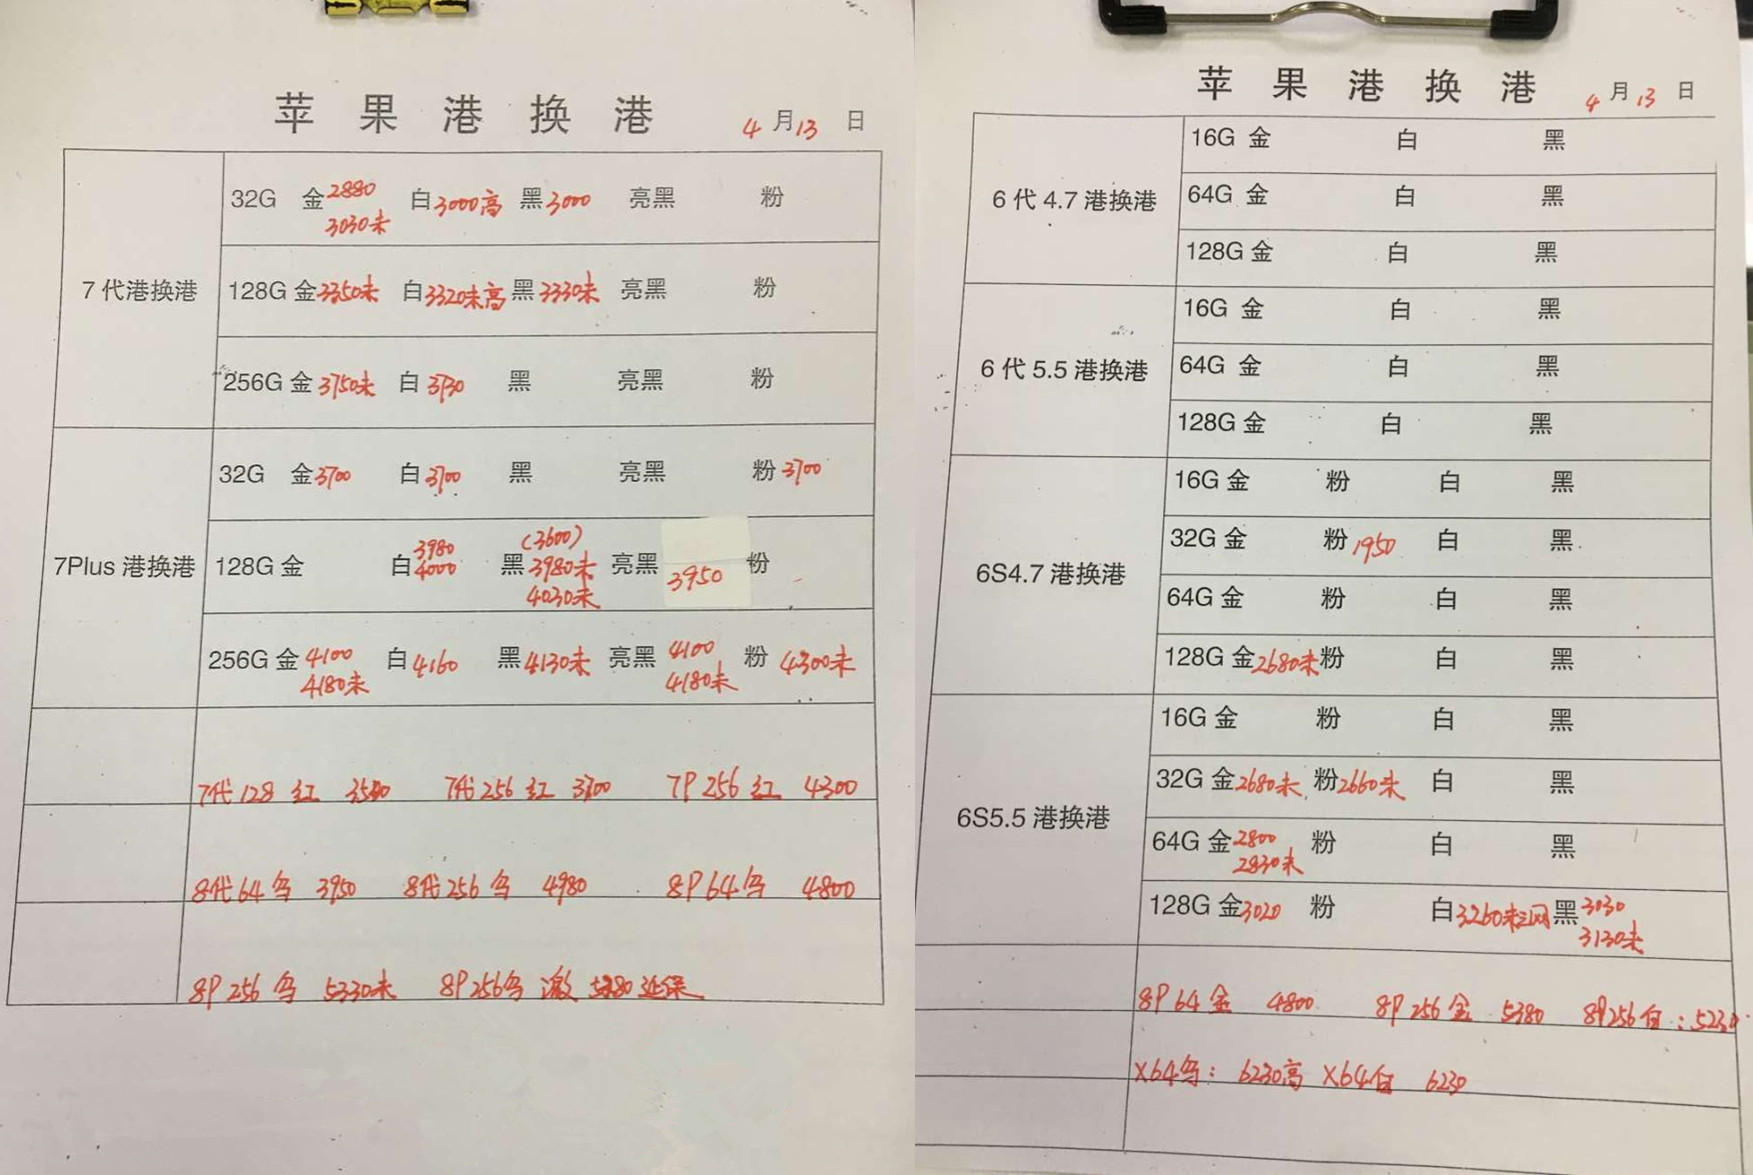 苹果港换港
4月13日
7代港换港
32G 金2880 白3000高 黑3000 亮黑 粉
3030未
128G 金3350未 白3320未高 黑3330未 亮黑 粉
256G 金3750未 白3730 黑 亮黑 粉
7Plus 港换港
32G 金3700 白3700 黑 亮黑 粉3700
128G 金 白3980 黑(3600) 亮黑3950 粉
4000 3980未
4030未
256G 金4100 白4160 黑4130未 亮黑4100 粉4300未
4180未 4180未
7代128 红 7代256 红 3700 7P 256 红 4300
8代64 3950 8代256 4980 8P 64 4800
8P 256 5330未 8P 256 激 延保
苹果港换港
4月13日
6代4.7港换港
16G 金 白 黑
64G 金 白 黑
128G 金 白 黑
6代5.5港换港
16G 金 白 黑
64G 金 白 黑
128G 金 白 黑
6S4.7港换港
16G 金 粉 白 黑
32G 金 粉1950 白 黑
64G 金 粉 白 黑
128G 金2680未 粉 白 黑
6S5.5港换港
16G 金 粉 白 黑
32G 金2680未 粉2660未 白 黑
64G 金2800 粉 白 黑
2830未
128G 金3020 粉 白3260未三网 黑3030
3130未
8P 64 金 4800 8P 256 金 5380 8P256白:5230
X64: 6230高 X64白 6230